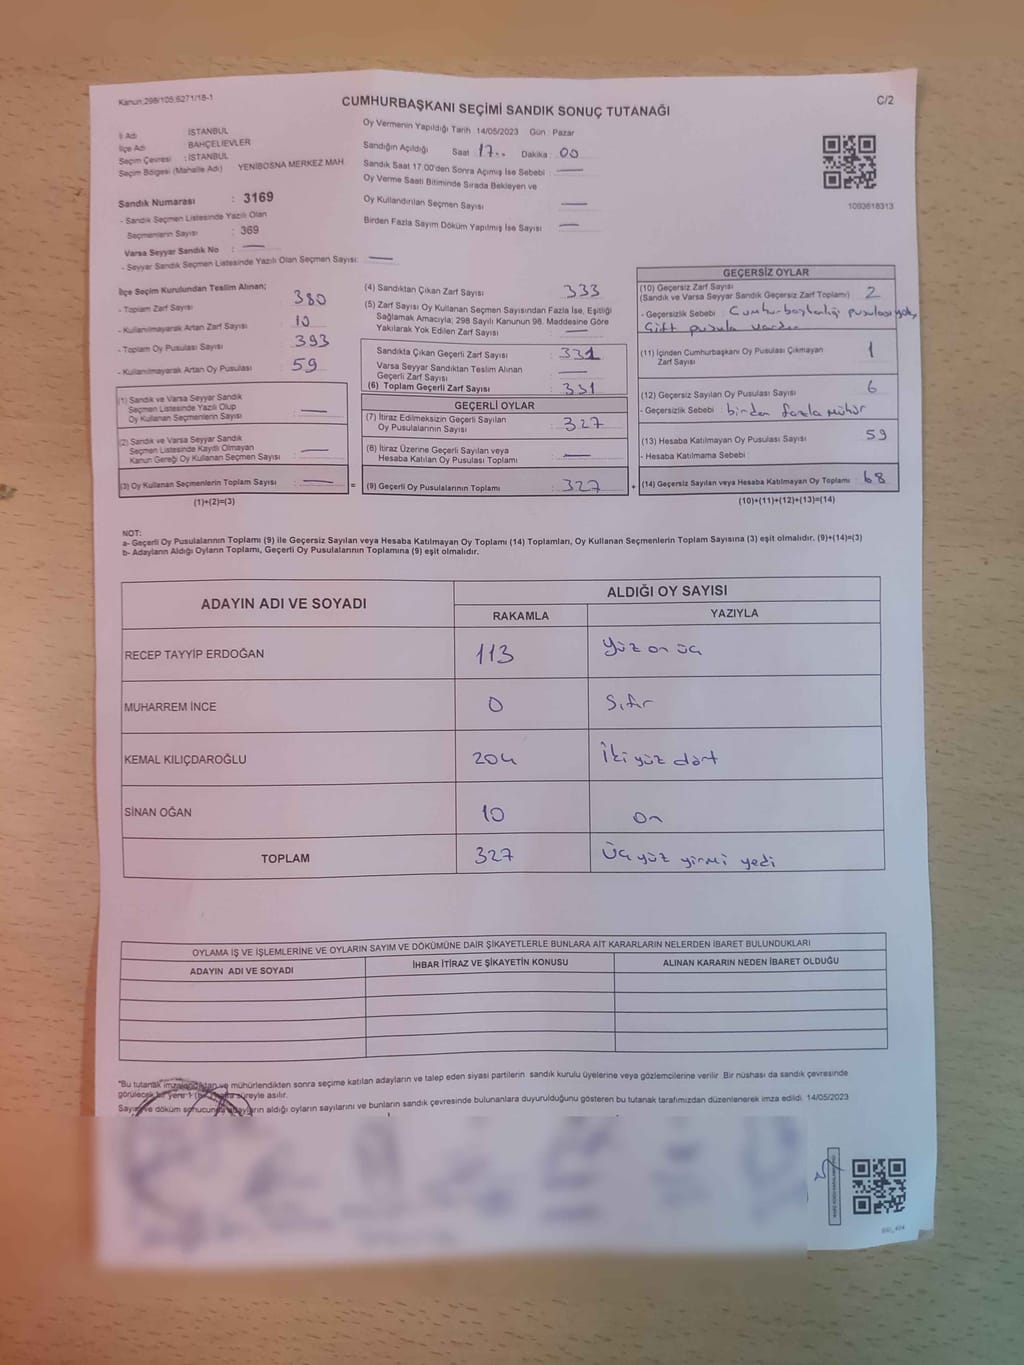 Kanun:298/105,6271/18-1
CUMHURBAŞKANI SEÇİMİ SANDIK SONUÇ TUTANAĞI
C/2
İl Adı İSTANBUL
İlçe Adı BAHÇELİEVLER
Seçim Çevresi : İSTANBUL
Seçim Bölgesi (Mahalle Adı) YENİBOSNA MERKEZ MAH.
Sandık Numarası : 3169
- Sandık Seçmen Listesinde Yazılı Olan
Seçmenlerin Sayısı : 369
Varsa Seyyar Sandık No : —
- Seyyar Sandık Seçmen Listesinde Yazılı Olan Seçmen Sayısı: —
Oy Vermenin Yapıldığı Tarih 14/05/2023 Gün : Pazar
Sandığın Açıldığı Saat 17.. Dakika 00
Sandık Saat 17:00'den Sonra Açmış İse Sebebi : —
Oy Verme Saati Bitiminde Sırada Bekleyen ve
Oy Kullandırılan Seçmen Sayısı : —
Birden Fazla Sayım Döküm Yapılmış İse Sayısı : —
1093618313
İlçe Seçim Kurulundan Teslim Alınan;
- Toplam Zarf Sayısı : 380
- Kullanılmayarak Artan Zarf Sayısı : 10
- Toplam Oy Pusulası Sayısı : 393
- Kullanılmayarak Artan Oy Pusulası : 59
(1) Sandık ve Varsa Seyyar Sandık
Seçmen Listesinde Yazılı Olup
Oy Kullanan Seçmenlerin Sayısı : —
(2) Sandık ve Varsa Seyyar Sandık
Seçmen Listesinde Kayıtlı Olmayan
Kanun Gereği Oy Kullanan Seçmen Sayısı : —
(3) Oy Kullanan Seçmenlerin Toplam Sayısı : —
(1)+(2)=(3)
(4) Sandıktan Çıkan Zarf Sayısı : 333
(5) Zarf Sayısı Oy Kullanan Seçmen Sayısından Fazla İse, Eşitliği
Sağlamak Amacıyla; 298 Sayılı Kanunun 98. Maddesine Göre
Yakılarak Yok Edilen Zarf Sayısı : —
Sandıkta Çıkan Geçerli Zarf Sayısı : 331
Varsa Seyyar Sandıktan Teslim Alınan
Geçerli Zarf Sayısı : —
(6) Toplam Geçerli Zarf Sayısı : 331
GEÇERLİ OYLAR
(7) İtiraz Edilmeksizin Geçerli Sayılan
Oy Pusulalarının Sayısı : 327
(8) İtiraz Üzerine Geçerli Sayılan veya
Hesaba Katılan Oy Pusulası Toplamı : —
= (9) Geçerli Oy Pusulalarının Toplamı : 327
GEÇERSİZ OYLAR
(10) Geçersiz Zarf Sayısı
(Sandık ve Varsa Seyyar Sandık Geçersiz Zarf Toplamı) : 2
- Geçersizlik Sebebi : Cumhurbaşkanlığı pusulası yok,
Çift pusula vardır
(11) İçinden Cumhurbaşkanı Oy Pusulası Çıkmayan
Zarf Sayısı : 1
(12) Geçersiz Sayılan Oy Pusulası Sayısı : 6
- Geçersizlik Sebebi : birden fazla mühür
(13) Hesaba Katılmayan Oy Pusulası Sayısı : 59
- Hesaba Katılmama Sebebi :
+ (14) Geçersiz Sayılan veya Hesaba Katılmayan Oy Toplamı : 68
(10)+(11)+(12)+(13)=(14)
NOT:
a- Geçerli Oy Pusulalarının Toplamı (9) ile Geçersiz Sayılan veya Hesaba Katılmayan Oy Toplamı (14) Toplamları, Oy Kullanan Seçmenlerin Toplam Sayısına (3) eşit olmalıdır. (9)+(14)=(3)
b- Adayların Aldığı Oyların Toplamı, Geçerli Oy Pusulalarının Toplamına (9) eşit olmalıdır.
ADAYIN ADI VE SOYADI
ALDIĞI OY SAYISI
RAKAMLA YAZIYLA
RECEP TAYYİP ERDOĞAN 113 Yüz on üç
MUHARREM İNCE 0 Sıfır
KEMAL KILIÇDAROĞLU 204 İki yüz dört
SİNAN OĞAN 10 On
TOPLAM 327 Üç yüz yirmi yedi
OYLAMA İŞ VE İŞLEMLERİNE VE OYLARIN SAYIM VE DÖKÜMÜNE DAİR ŞİKAYETLERLE BUNLARA AİT KARARLARIN NELERDEN İBARET BULUNDUKLARI
ADAYIN ADI VE SOYADI İHBAR İTİRAZ VE ŞİKAYETİN KONUSU ALINAN KARARIN NEDEN İBARET OLDUĞU
"Bu tutanak imzalandıktan ve mühürlendikten sonra seçime katılan adayların ve talep eden siyasi partilerin sandık kurulu üyelerine veya gözlemcilerine verilir .Bir nüshası da sandık çevresinde
görülecek bir yere 1 (bir) hafta süreyle asılır.
Sayım ve döküm sonucunda adayların aldığı oyların sayılarını ve bunların sandık çevresinde bulunanlara duyurulduğunu gösteren bu tutanak tarafımızdan düzenlenerek imza edildi. 14/05/2023